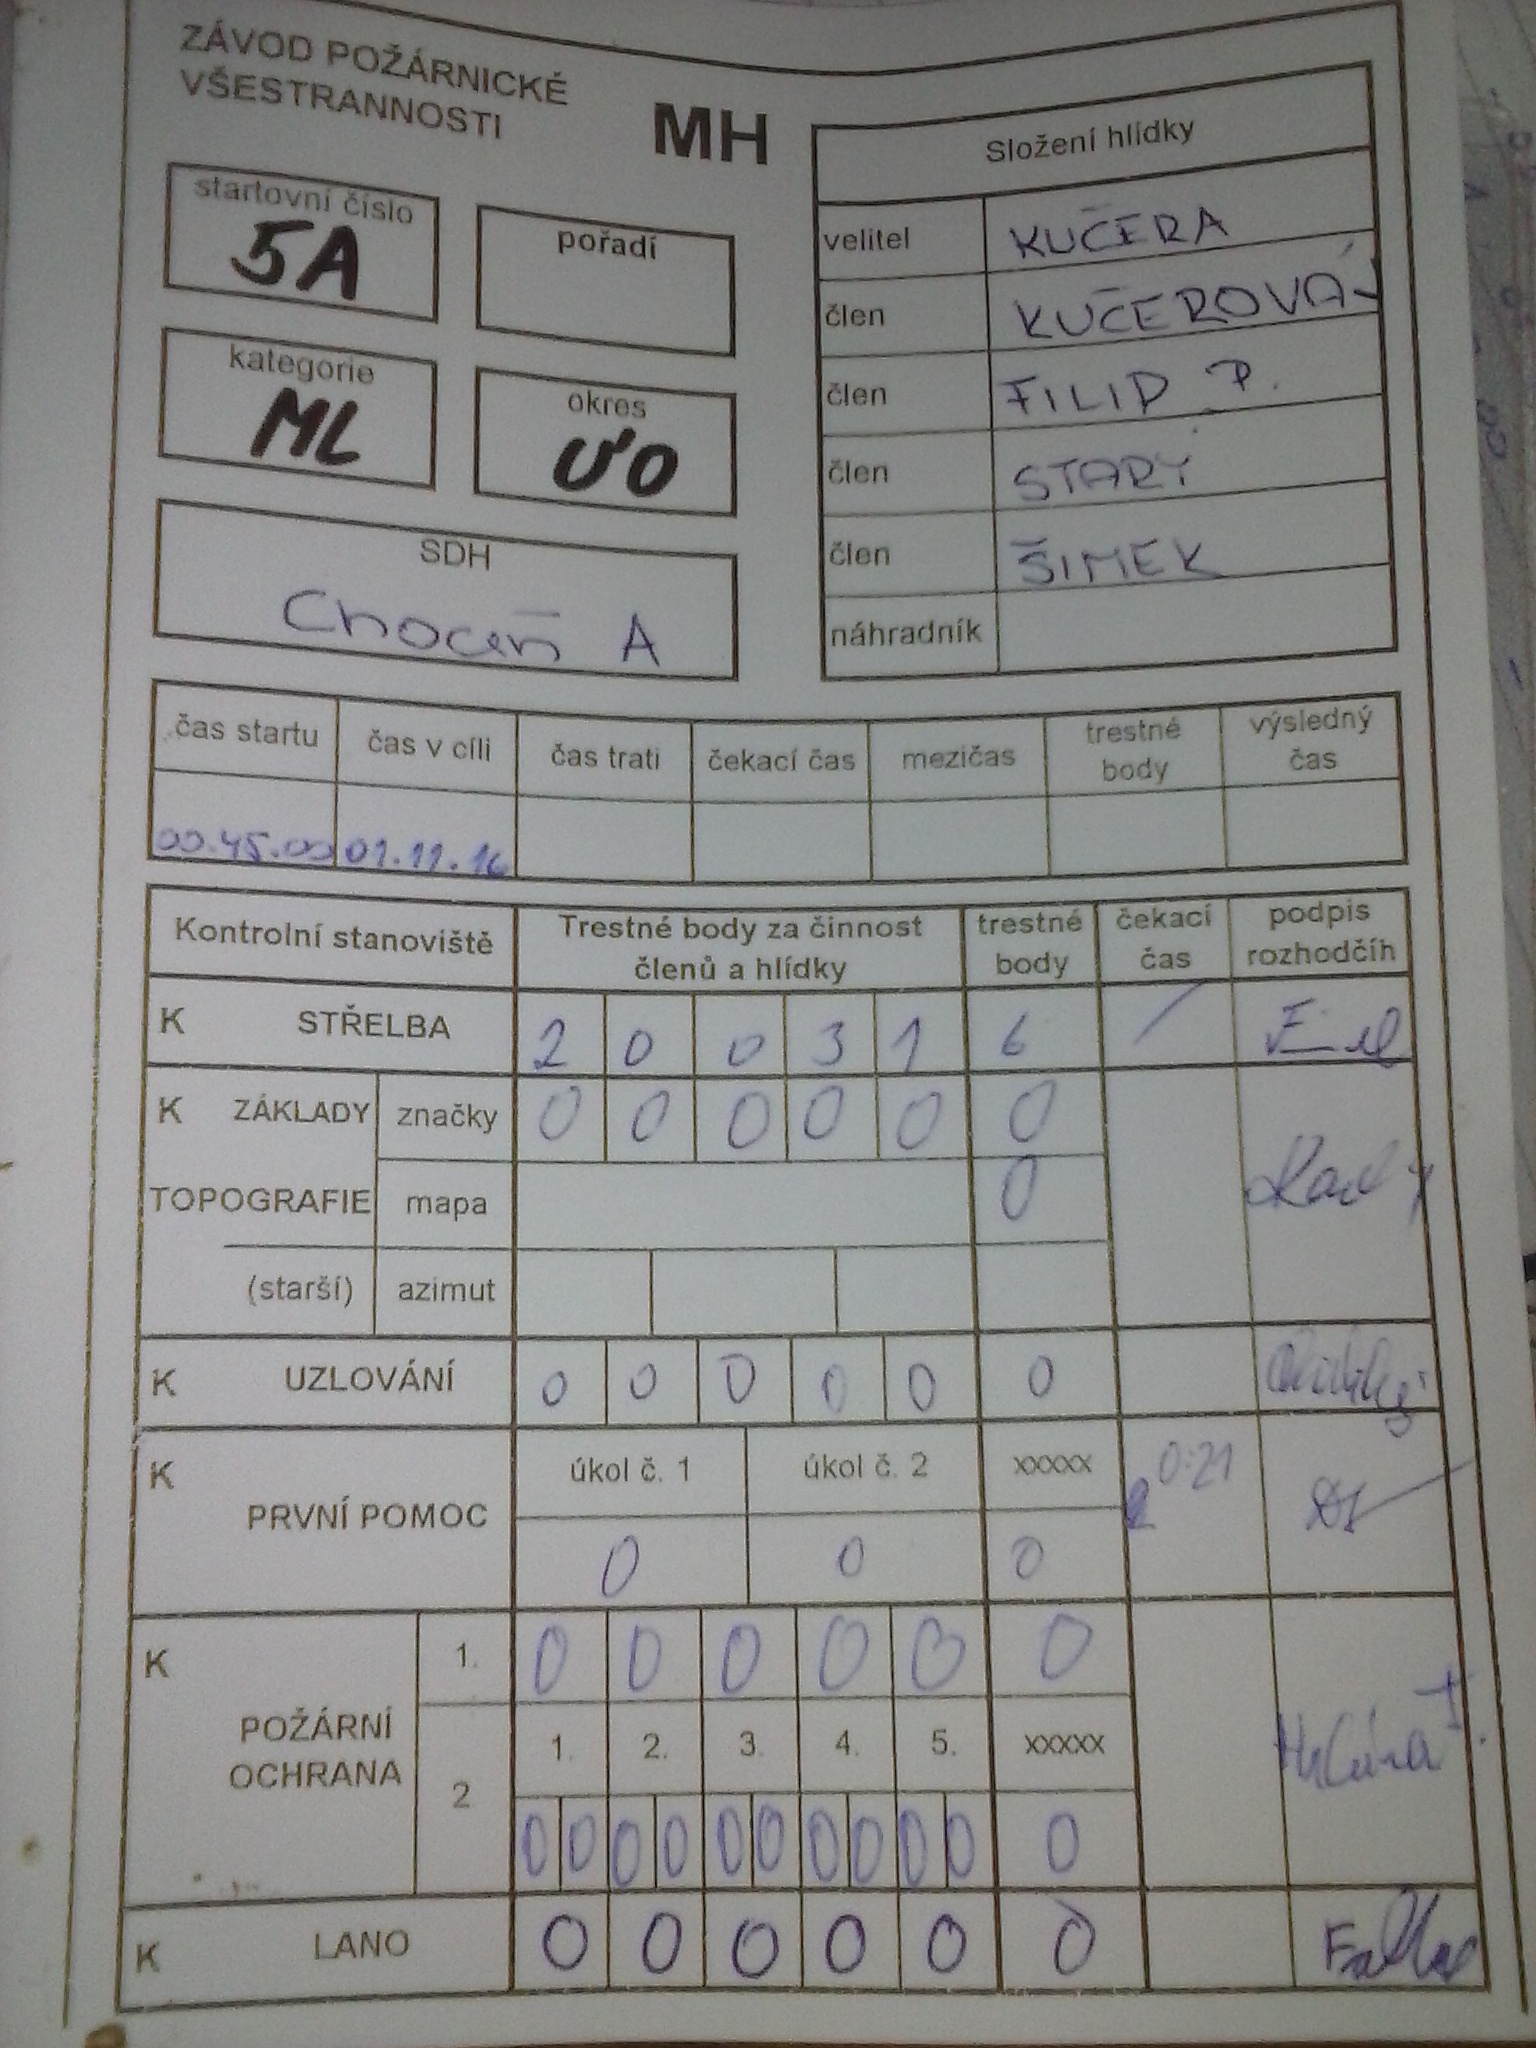 ZÁVOD POŽÁRNICKÉ
VŠESTRANNOSTI
MH
startovní číslo
5A
pořadí
kategorie
ML
okres
ÚO
SDH
Choceň A
Složení hlídky
velitel KUČERA
člen KUČEROVÁ
člen FILIP P.
člen STARÝ
člen ŠIMEK
náhradník
čas startu čas v cíli čas trati čekací čas mezičas trestné body výsledný čas
00.45.00 01.11.16
Kontrolní stanoviště Trestné body za činnost členů a hlídky trestné body čekací čas podpis rozhodčíh
K STŘELBA 2 0 0 3 1 6 /
K ZÁKLADY značky 0 0 0 0 0 0
TOPOGRAFIE mapa 0
(starší) azimut
K UZLOVÁNÍ 0 0 0 0 0 0
K PRVNÍ POMOC úkol č. 1 úkol č. 2 xxxxx 0:21
0 0 0
K POŽÁRNÍ OCHRANA 1. 0 0 0 0 0 0
2 1. 2. 3. 4. 5. xxxxx
0 0 0 0 0 0 0 0 0 0 0
K LANO 0 0 0 0 0 0